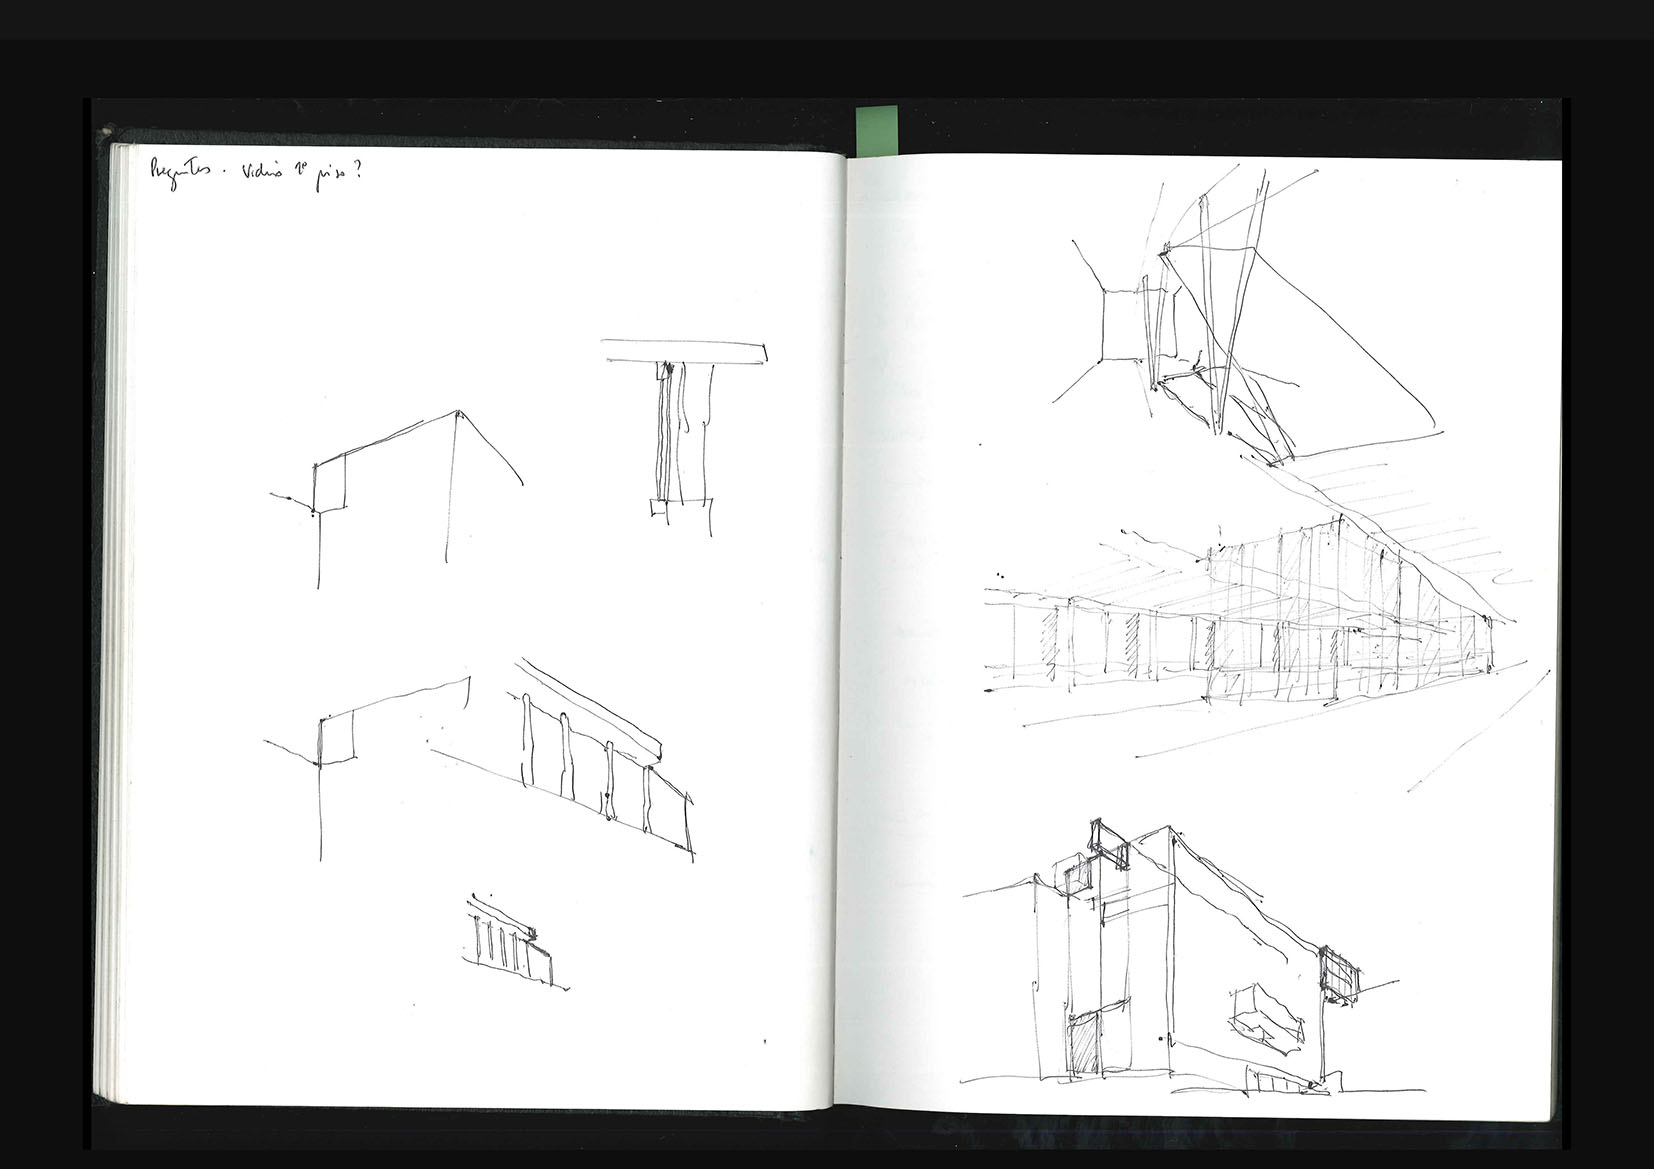 Preguntas. Vidrio 1º piso?